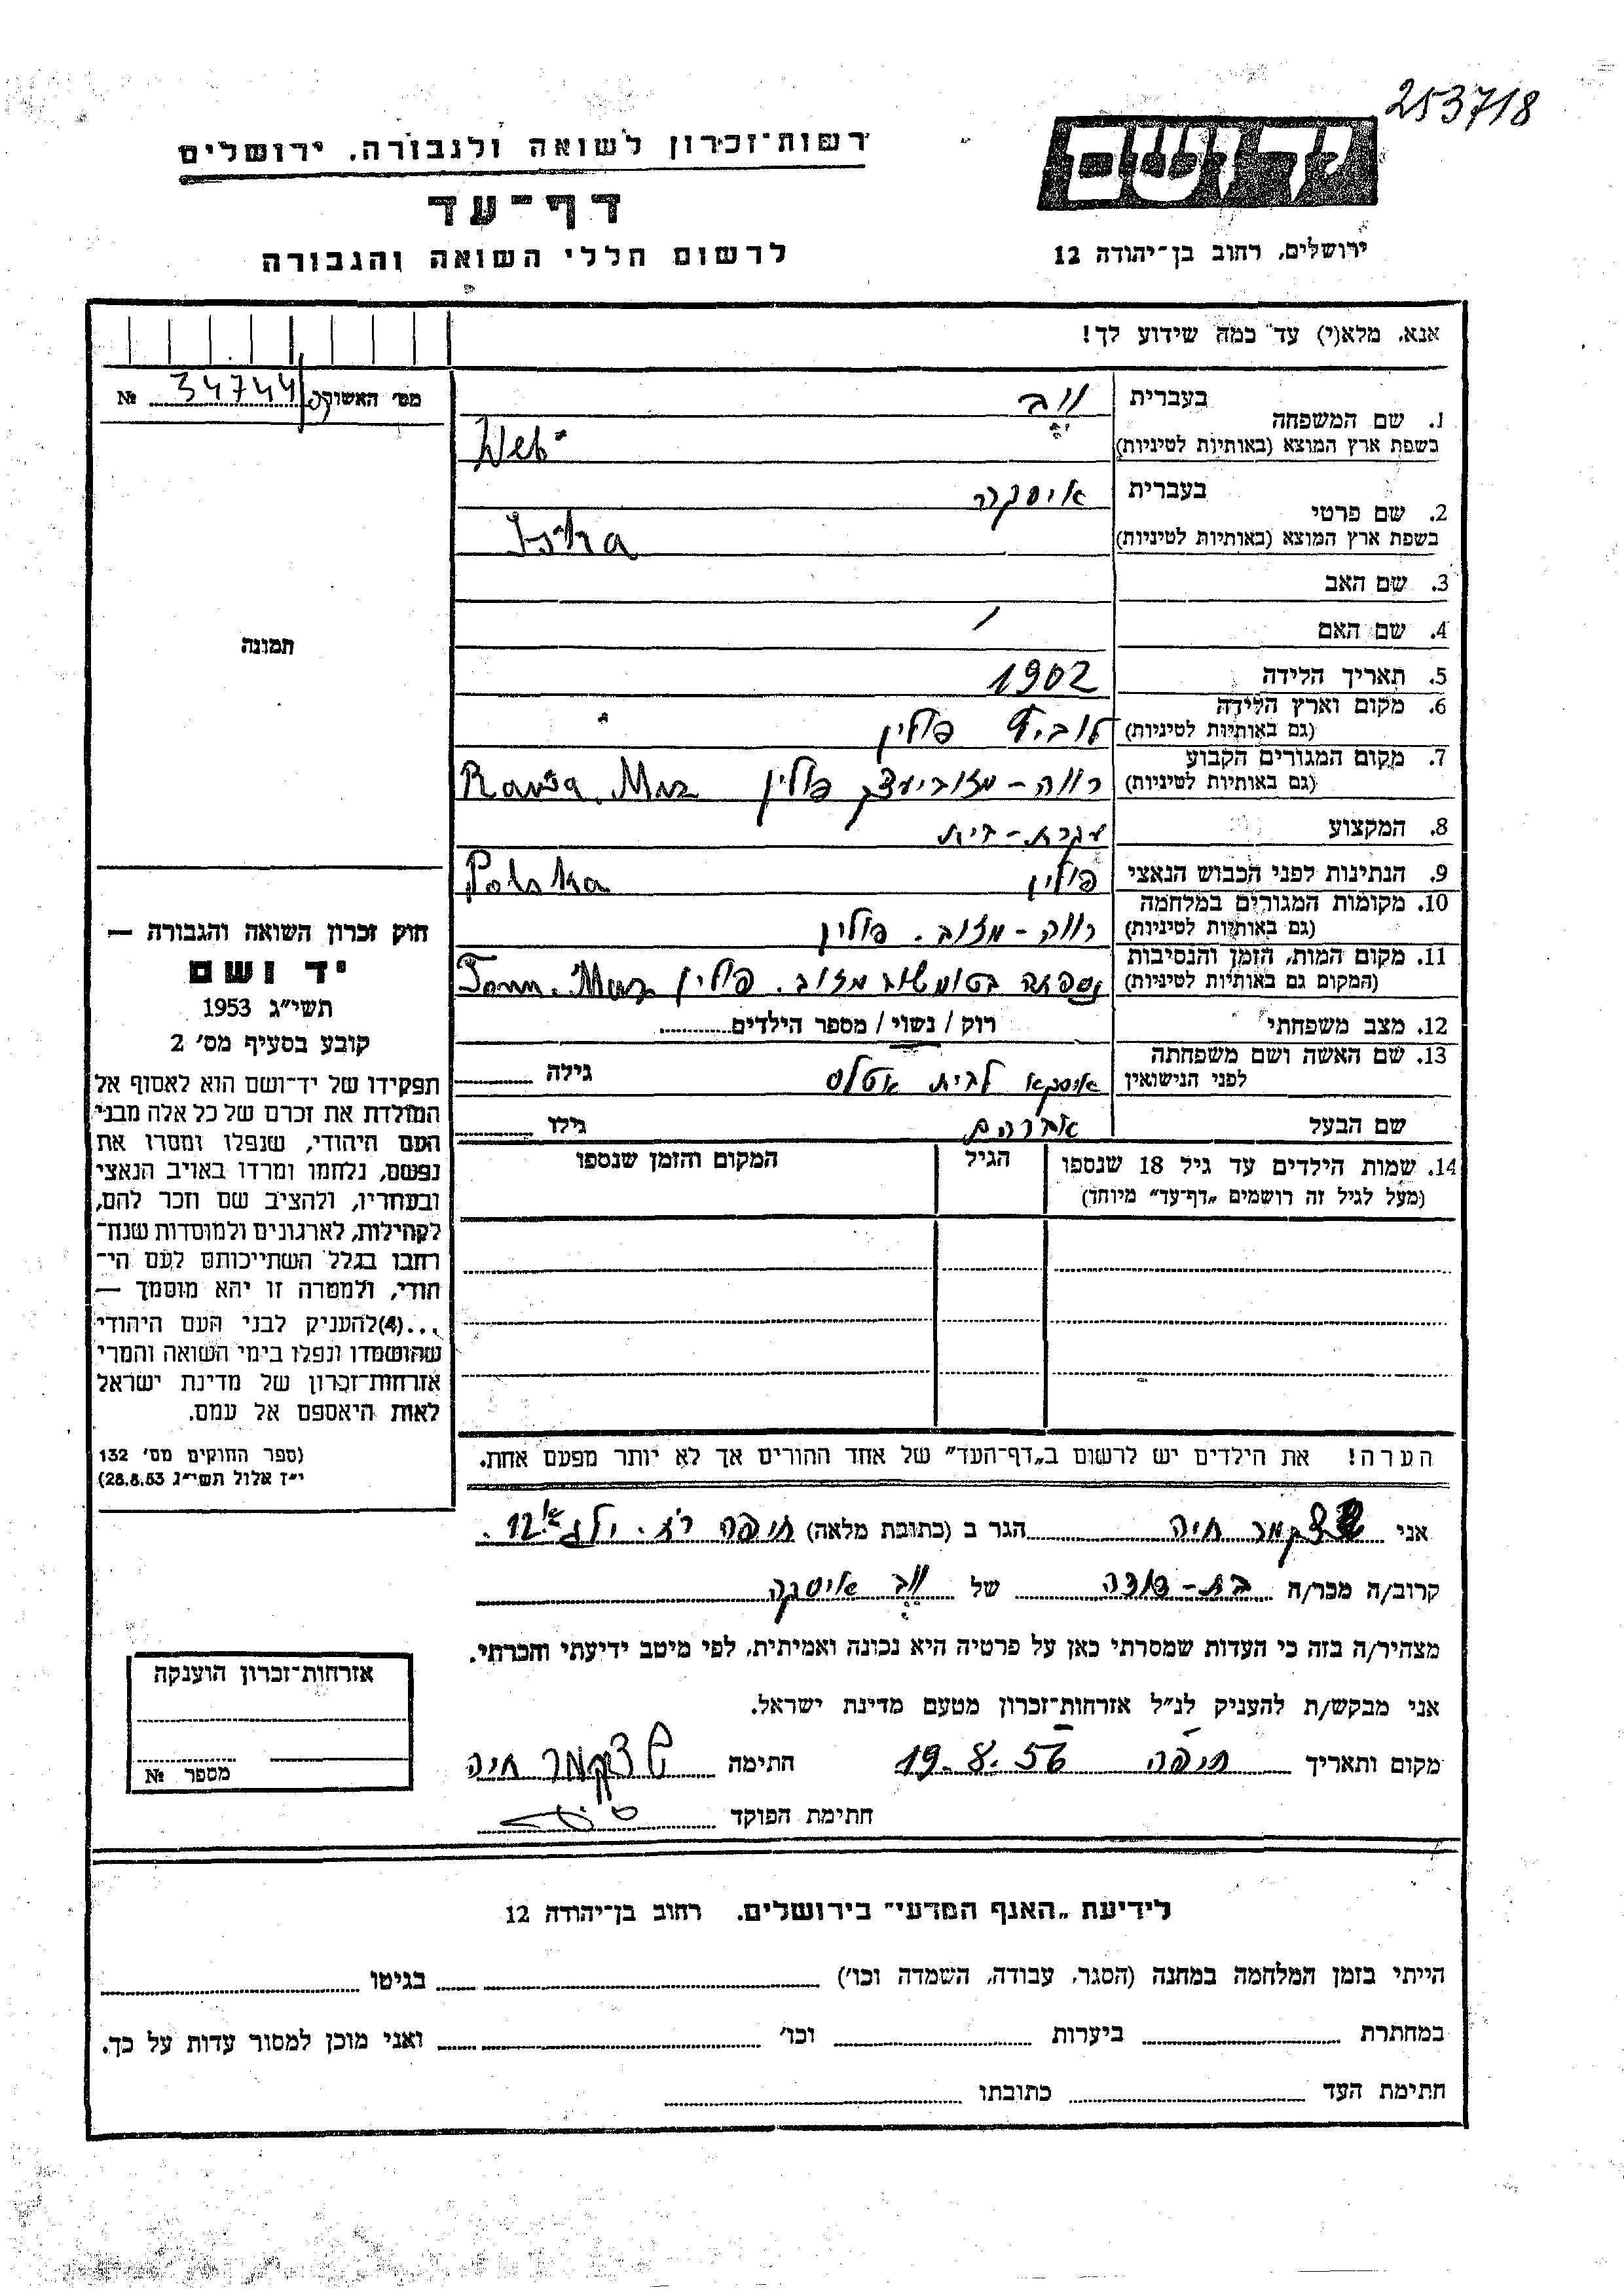 253718
יד ושם
ירושלים, רחוב בן־יהודה 12
רשות־זכרון לשואה ולגבורה, ירושלים
דף־עד
לרשום חללי השואה והגבורה
אנא, מלא(י) עד כמה שידוע לך!
מס׳ האשורים № 34744
תמונה
1. שם המשפחה בעברית ווב
בשפת ארץ המוצא (באותיות לטיניות) Web
2. שם פרטי בעברית
בשפת ארץ המוצא (באותיות לטיניות) Iska
3. שם האב
4. שם האם
5. תאריך הלידה 1902
6. מקום וארץ הלידה (גם באותיות לטיניות) פולין
7. מקום המגורים הקבוע (גם באותיות לטיניות) רווה - מזוביעצק פולין Rawa. Maz
8. המקצוע עקרת-בית
9. הנתינות לפני הכבוש הנאצי פולין Polska
10. מקומות המגורים במלחמה (גם באותיות לטיניות) רווה - מזוב. פולין
11. מקום המות, הזמן והנסיבות (המקום גם באותיות לטיניות) נספתה בטומשוב מזוב. פולין Tom. Maz
12. מצב משפחתי רוק / נשוי / מספר הילדים
13. שם האשה ושם משפחתה לפני הנישואין איסקא לבית אטלס גילה
שם הבעל אברהם גילו
14. שמות הילדים עד גיל 18 שנספו (מעל לגיל זה רושמים „דף־עד״ מיוחד) הגיל המקום והזמן שנספו
חוק זכרון השואה והגבורה —
יד ושם
תשי״ג 1953
קובע בסעיף מס׳ 2
תפקידו של יד־ושם הוא לאסוף אל
המולדת את זכרם של כל אלה מבני
העם היהודי, שנפלו ומסרו את
נפשם, נלחמו ומרדו באויב הנאצי
ובעוזריו, ולהציב שם וזכר להם,
לקהילות, לארגונים ולמוסדות שנח־
רבו בגלל השתייכותם לעם הי־
הודי, ולמטרה זו יהא מוסמך —
...(4) להעניק לבני העם היהודי
שהושמדו ונפלו בימי השואה והמרי
אזרחות־זכרון של מדינת ישראל
לאות היאספם אל עמם.
(ספר החוקים מס׳ 132
י״ז אלול תשי״ג 28.8.53)
הערה! את הילדים יש לרשום ב„דף־העד״ של אחד ההורים אך לא יותר מפעם אחת.
אני חיה הגר ב (כתובת מלאה) חיפה
קרוב/ה מכר/ה בת-דודה של ווב איסקה
מצהיר/ה בזה כי העדות שמסרתי כאן על פרטיה היא נכונה ואמיתית, לפי מיטב ידיעתי והכרתי.
אני מבקש/ת להעניק לנ״ל אזרחות־זכרון מטעם מדינת ישראל.
מקום ותאריך חיפה 19.8.56 חתימה חיה
חתימת הפוקד
אזרחות־זכרון הוענקה
מספר №
לידיעת „האגף המדעי״ בירושלים, רחוב בן־יהודה 12
הייתי בזמן המלחמה במחנה (הסגר, עבודה, השמדה וכו׳) בגיטו
במחתרת ביערות וכו׳ ואני מוכן למסור עדות על כך.
חתימת העד כתובתו